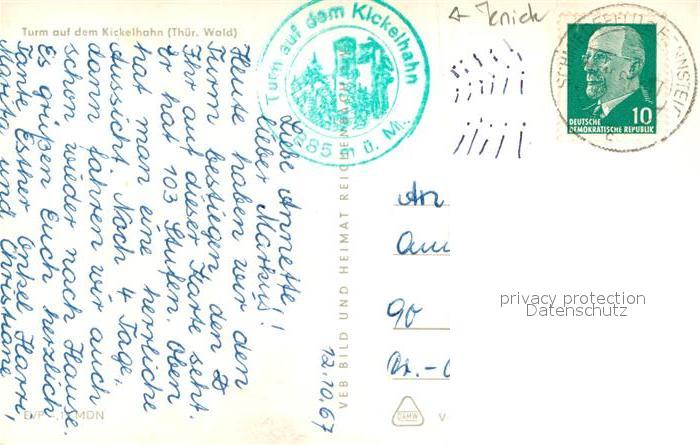 Turm auf dem Kickelhahn (Thür. Wald)
Turm auf dem Kickelhahn
885 m ü. M.
← Jenich
DEUTSCHE
DEMOKRATISCHE REPUBLIK
10
Liebe Annette!
lieber Markus!
Heute haben wir den
Turm bestiegen den
Ihr auf dieser Karte seht.
Er hat 103 Stufen. Oben
hat man eine herrliche
Aussicht. Noch 4 Tage,
dann fahren wir auch
schon wieder nach Hause.
Es grüßen Euch herzlich
Tante Esther Onkel Harri,
Marita und Christiane
12.10.67
VEB BILD UND HEIMAT REICHENBACH
An
90
privacy protection
Datenschutz
DAMW
V
MDN